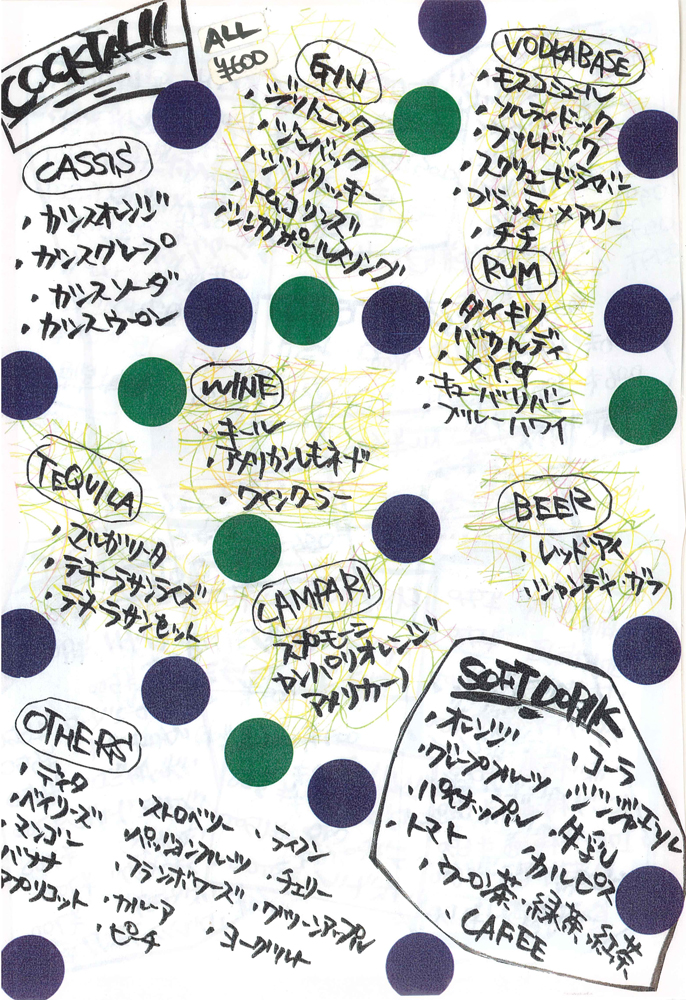 COCKTAIL!!
ALL
¥600
CASSIS
・カシスオレンジ
・カシスグレープ
・カシスソーダ
・カシスウーロン
GIN
・ジントニック
・ジンバック
・ジンリッキー
・トムコリンズ
・シンガポールスリング
VODKABASE
・モスコミュール
・ソルティドック
・ブルドック
・スクリュードライバー
・ブラッディ・メアリー
・チチ
RUM
・ダイキリ
・バカルディ
・X.Y.G
・キューバ・リバー
・ブルーハワイ
WINE
・キール
・アメリカンレモネード
・ワインクーラー
TEQUILA
・マルガリータ
・テキーラサンライズ
・テキーラサンセット
BEER
・レッド・アイ
・シャンディ・ガフ
CAMPARI
スプモーニ
カンパリオレンジ
アメリカーノ
OTHERS
・ディタ
・ベイリーズ
・マンゴー
・バナナ
アプリコット
・ストロベリー
・パッションフルーツ
・フランボワーズ
・カルーア
・ピーチ
・ライフン
・チェリー
・グリーンアップル
・ヨーグルト
SOFT DORIK
・オレンジ
・グレープフルーツ
・パイナップル
・トマト
・コーラ
・ジンジャーエール
・牛乳
・カルピス
・ウーロン茶・緑茶、紅茶
CAFEE